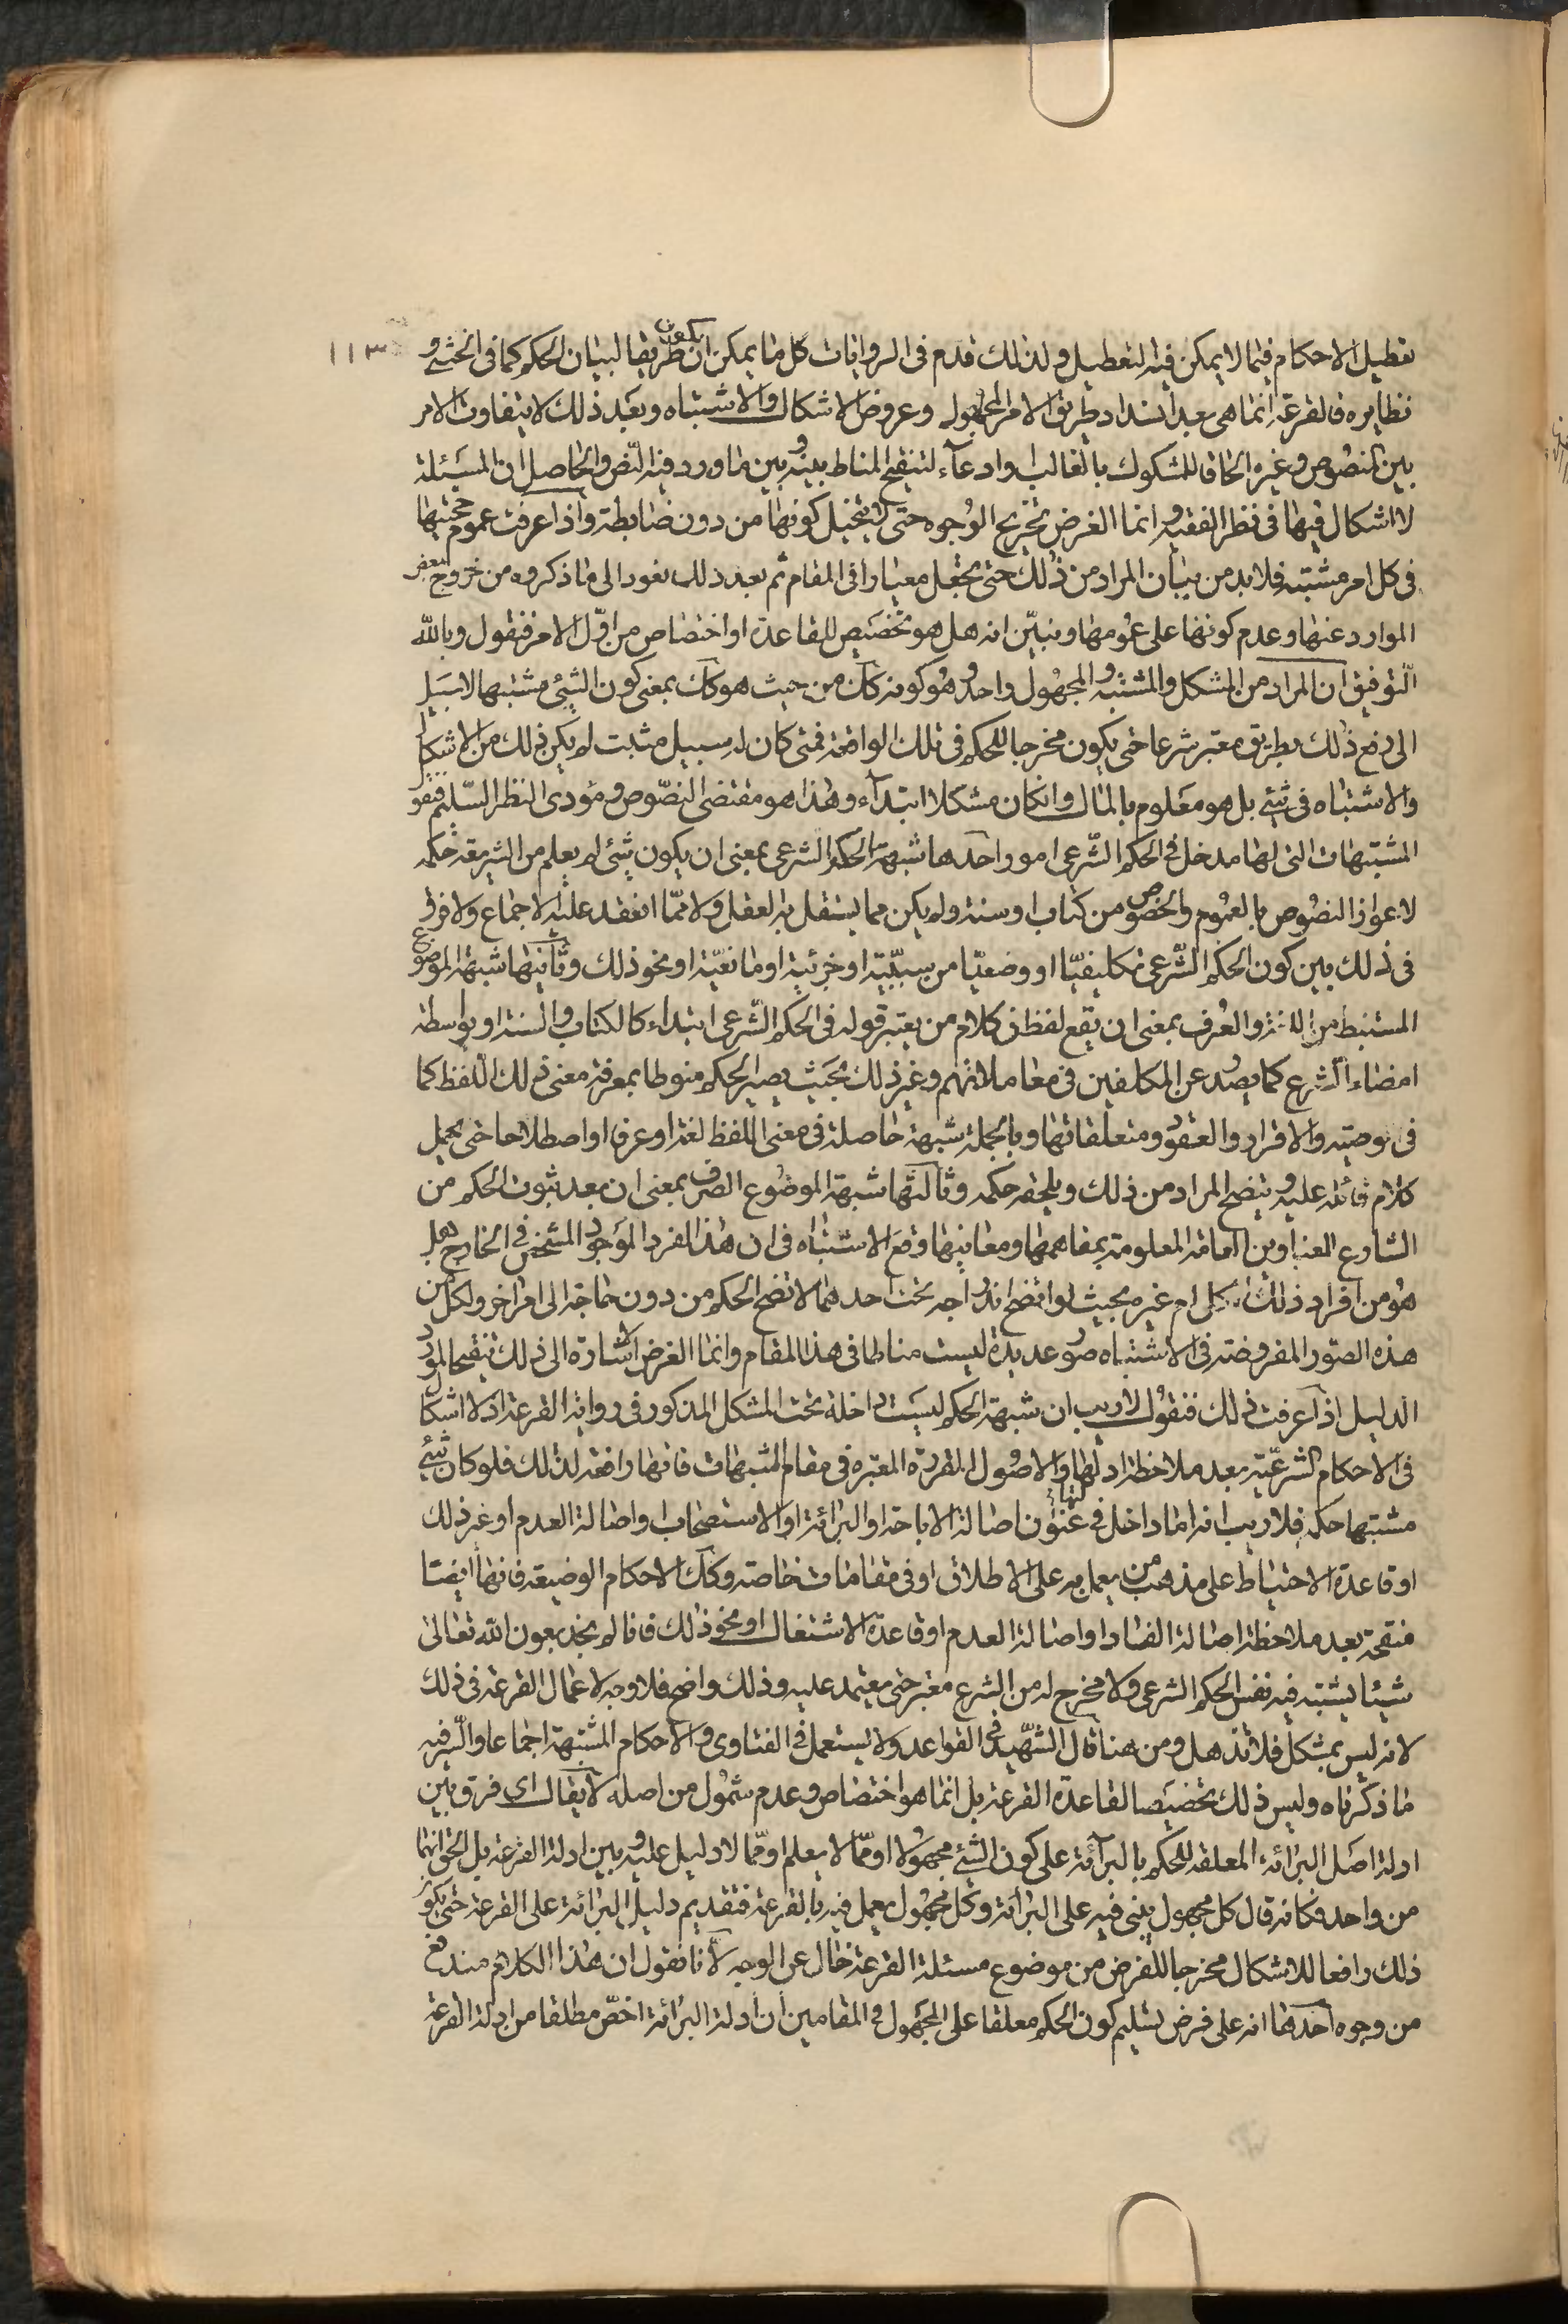 ١١٣
تعطيل الاحكام فيما لا يمكن فيه التعطيل ولذلك قدم فى الروايات كل ما يمكن ان يكون طريقا لبيان الحكم كما فى الخنثى و
نظايره فالقرعة انما هى بعد انسداد طريق الامر المجهول وعروض الاشكال والاشتباه وبعد ذلك لا يتفاوت الامر
بين المنصوص وغيره الحاقا للمشكوك بالغالب وادعاء لتنقيح المناط بينه وبين ما ورد فيه النص والحاصل ان المسئلة
لا اشكال فيها فى نظر الفقيه وانما الغرض تخريج الوجوه حتى لا يتخيل كونها من دون ضابطة واذا عرفت عموم حجيتها
فى كل امر مشتبه فلابد من بيان المراد من ذلك حتى يجعل معيارا فى المقام ثم بعد ذلك نعود الى ما ذكروه من خروج بعض
الموارد عنها وعدم كونها على عمومها ونبين انه هل هو تخصيص للقاعدة او اختصاص من اول الامر فنقول وبالله
التوفيق ان المراد من المشكل والمشتبه والمجهول واحد وهو كونه كك من حيث هو كك بمعنى كون الشئ مشتبها لا سبيل
الى دفع ذلك بطريق معتبر شرعا حتى يكون مخرجا للحكم فى تلك الواقعة فمتى كان له سبيل مثبت لم يكن ذلك من الاشكال
والاشتباه فى شئ بل هو معلوم بالمال وان كان مشكلا ابتداء وهذا هو مقتضى النصوص ومؤدى النظر السليم فنقول
المشتبهات التى لها مدخل فى الحكم الشرعى امور احدها شبهة الحكم الشرعى بمعنى ان يكون شئ لم يعلم من الشريعة حكمه
لاعواز النصوص بالعموم والخصوص من كتاب او سنة ولم يكن مما يستقل به العقل ولا مما انعقد عليه الاجماع ولا فرق
فى ذلك بين كون الحكم الشرعى تكليفيا او وضعيا من سببية او جزئية او مانعية او نحو ذلك وثانيها شبهة الموضوع
المستنبط من اللغة والعرف بمعنى ان يقع لفظ فى كلام من يعتبر قوله فى الحكم الشرعى ابتداء كالكتاب والسنة او بواسطة
امضاء الشرع كما يصدر عن المكلفين فى معاملاتهم وغير ذلك بحيث يصير الحكم منوطا بمعرفة معنى ذلك اللفظ كما
فى توصيته والاقرار والعقود ومتعلقاتها وبالجملة شبهة حاصلة فى معنى اللفظ لغة او عرفا او اصطلاحا حتى يحمل
كلام قائله عليه ويتضح المراد من ذلك ويلحقه حكمه وثالثها شبهة الموضوع الصرف بمعنى ان بعد ثبوت الحكم من
الشارع العناوين العامة المعلومة بمفاهيمها ومعانيها وقع الاشتباه فى ان هذا الفرد الموجود المشخص فى الخارج هل
هو من افراد ذلك الكلى ام غيره بحيث لو اتضح اندراجه تحت احدهما لاتضح الحكم من دون حاجة الى امر اخر ولكل من
هذه الصور المفروضة فى الاشتباه صور عديدة ليست مناطا فى هذا المقام وانما الغرض الاشارة الى ذلك تنقيحا لمورد
الدليل اذا عرفت ذلك فنقول لا ريب ان شبهة الحكم ليست داخلة تحت المشكل المذكور فى رواية القرعة اذ لا اشكال
فى الاحكام الشرعية بعد ملاحظة ادلتها والاصول المقررة المعتبره فى مقام الشبهات فانها رافعة لذلك فلو كان شئ
مشتبها حكمه فلا ريب انه اما داخل فى عنوان اصالة الاباحة او البرائة او الاستصحاب واصالة العدم او غير ذلك
او قاعدة الاحتياط على مذهب من يعمل به على الاطلاق او فى مقامات خاصة وكك الاحكام الوضيعة فانها ايضا
منقحة بعد ملاحظة اصالة الفساد او اصالة العدم او قاعدة الاشتغال او نحو ذلك فانا لم نجد بعون الله تعالى
شيئا يشتبه فيه نفس الحكم الشرعى ولا مخرج له من الشرع معتبر حتى يعتمد عليه وذلك واضح فلا وجه لاعمال القرعة فى ذلك
لانه ليس بمشكل فلا تذهل ومن هنا قال الشهيد فى القواعد ولا يستعمل فى الفتاوى والاحكام المشتبهة اجماعا والسر فيه
ما ذكرناه وليس ذلك تخصيصا لقاعدة القرعة بل انما هو اختصاص وعدم شمول من اصله لا يقال اى فرق بين
ادلة اصل البرائة المعلقة للحكم بالبرائة على كون الشئ مجهولا او مما لا يعلم او مما لا دليل عليه وبين ادلة القرعة بل الحق انهما
من واحد فكانه قال كل مجهول يبنى فيه على البرائة وكل مجهول يعمل فيه بالقرعة فتقديم دليل البرائة على القرعة حتى يكون
ذلك رافعا للاشكال مخرجا للفرض من موضوع مسئلة القرعة خال عن الوجه لأنا نقول ان هذا الكلام مندفع
من وجوه احدها انه على فرض تسليم كون الحكم معلقا على المجهول فى المقامين ان ادلة البرائة اخص مطلقا من ادلة القرعة